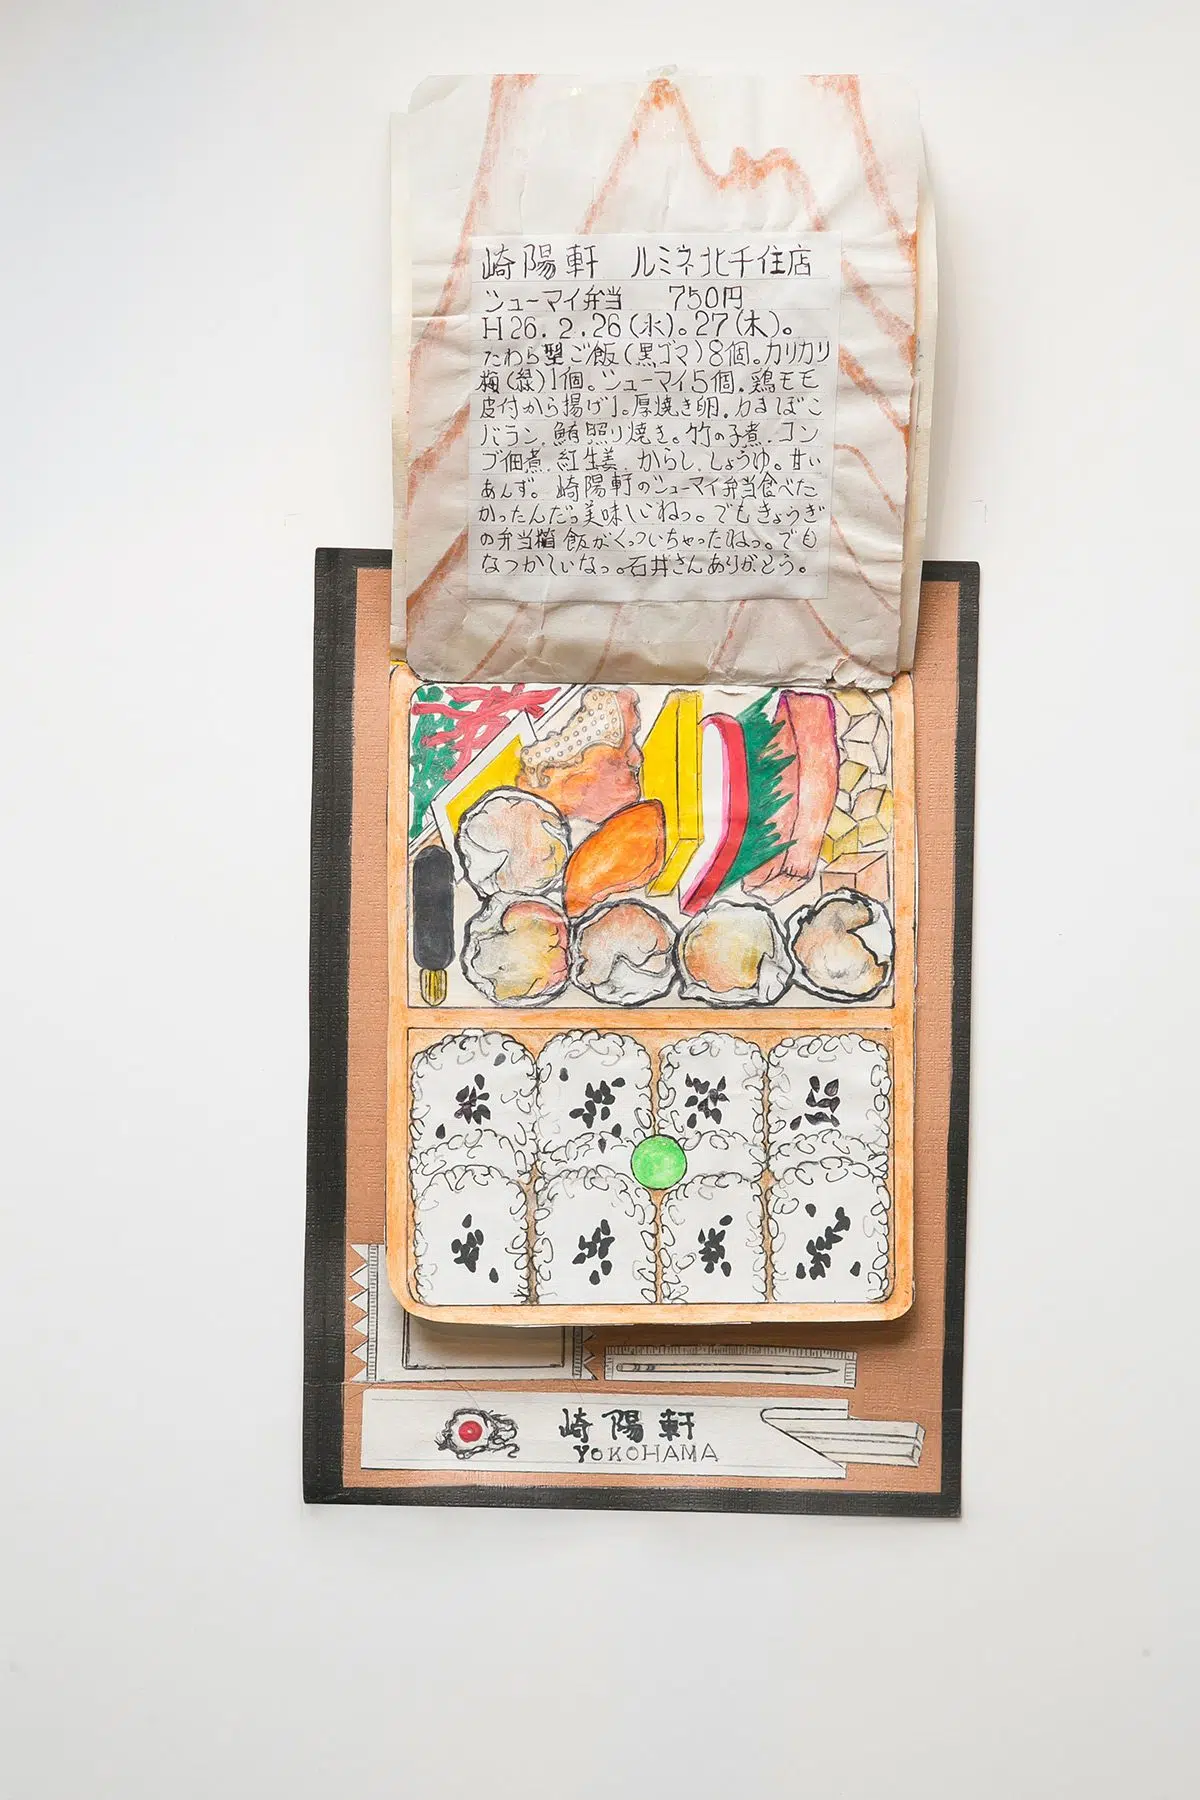 崎陽軒 ルミネ北千住店
シューマイ弁当 750円
H26.2.26(水)。27(木)。
たわら型ご飯(黒ゴマ)8個。カリカリ
梅(緑)1個。シューマイ5個。鶏モモ
皮付から揚げ1。厚焼き卵。かまぼこ
バラン。鮪照り焼き。竹の子煮。コン
ブ佃煮。紅生姜。からし。しょうゆ。甘い
あんず。崎陽軒のシューマイ弁当食べた
かったんだっ美味しいねっ。でもきょうぎ
の弁当箱飯がくっついちゃったねっ。でも
なつかしいなっ。石井さんありがとう。
崎陽軒
YOKOHAMA